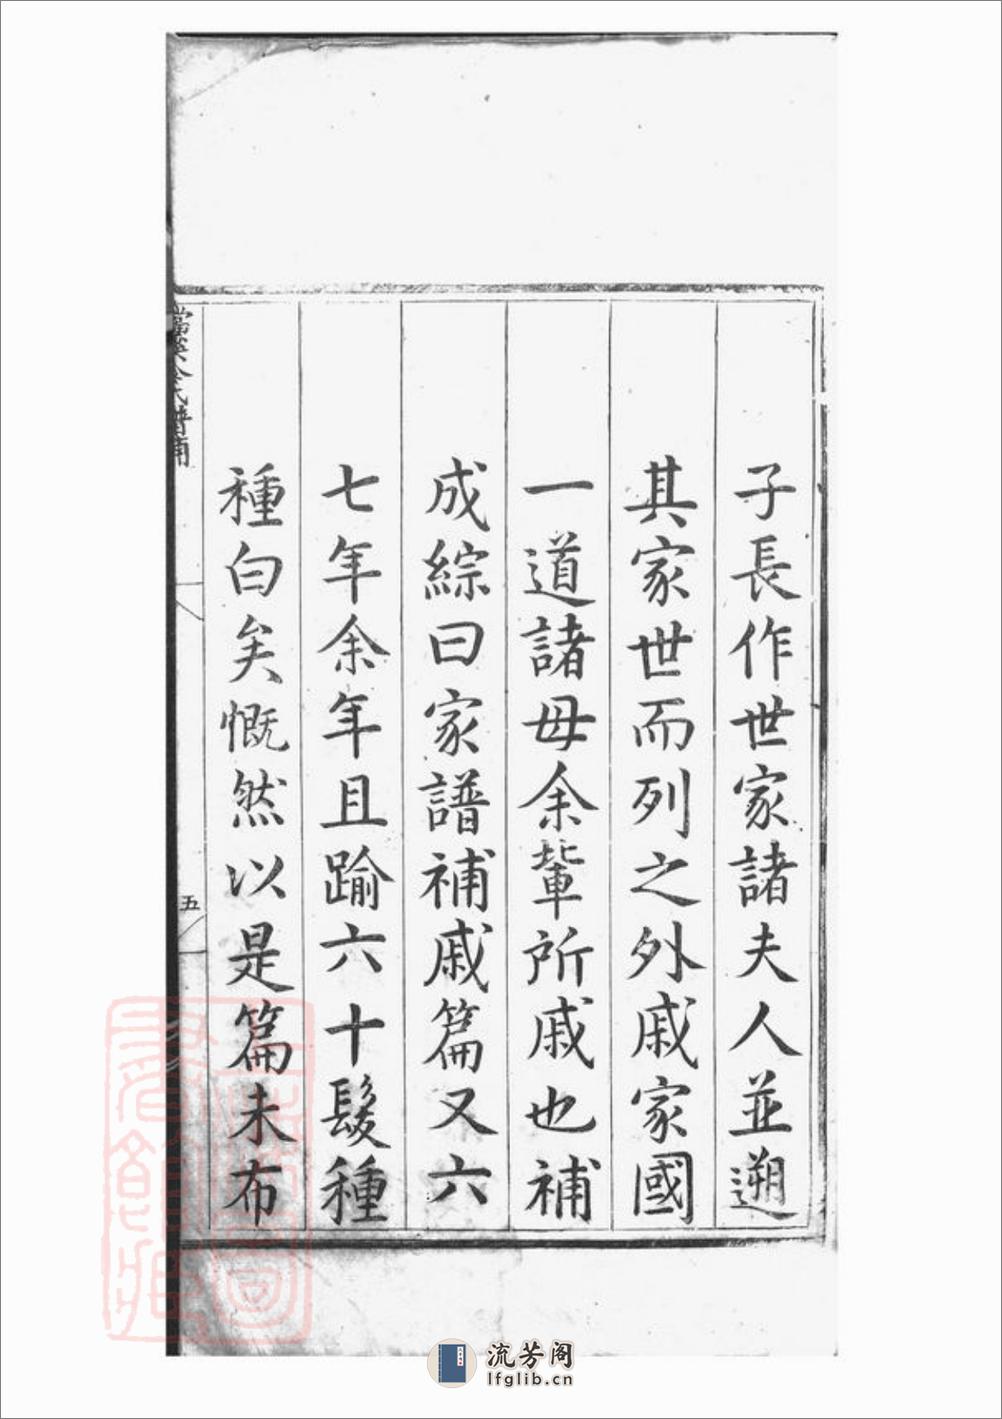 子長作世家諸夫人並遡
其家世而列之外戚家國
一道諸母余輩所戚也補
成綜曰家譜補戚篇又六
七年余年且踰六十髮種
種白矣慨然以是篇未布
五
流芳阁
lfglib.cn